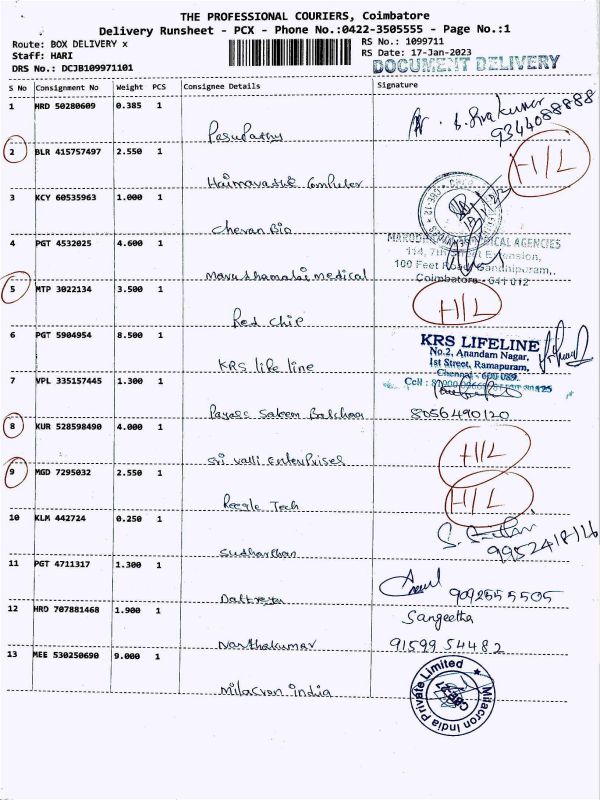 THE PROFESSIONAL COURIERS, Coimbatore
Delivery Runsheet - PCX - Phone No.:0422-3505555 - Page No.:1
Route: BOX DELIVERY x
RS No.: 1099711
Staff: HARI
RS Date: 17-Jan-2023
DRS No.: DCJB109971101
DOCUMENT DELIVERY
S No Consignment No Weight PCS Consignee Details Signature
1 HRD 50280609 0.385 1
Pasupathy
9344088888
2 BLR 415757497 2.550 1
H/L
Haimavathi Computer
3 KCY 60535963 1.000 1
Chevan Bio
4 PGT 4532025 4.600 1
MEDICAL AGENCIES
114, 7th Street Extension,
100 Feet Road, Gandhipuram,
Coimbatore - 641 012
Maruthamalai medical
5 MTP 3022134 3.500 1
H/L
Red Chip
6 PGT 5904954 8.500 1
KRS LIFELINE
No.2, Anandam Nagar,
1st Street, Ramapuram,
Chennai - 600 089.
Cell :
KRS life line
7 VPL 335157445 1.300 1
8056490120
8 KUR 528598490 4.000 1
H/L
Sri Valli Enterprises
9 MGD 7295032 2.550 1
H/L
Reegle Tech
10 KLM 442724 0.250 1
Sudharshan
11 PGT 4711317 1.300 1
9092555505
12 HRD 707881468 1.900 1
Sangeetha
Nanthakumar
91599 54482
13 MEE 530250690 9.000 1
Milacron India
Milacron India Private Limited